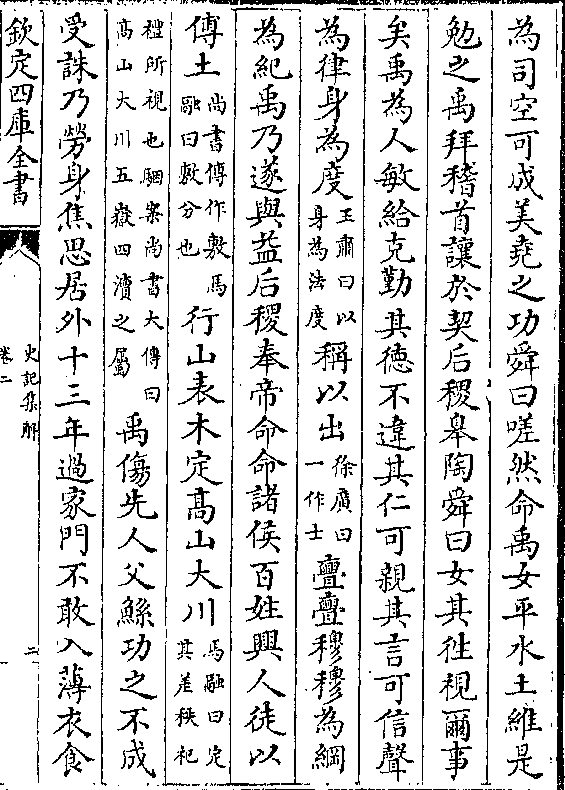 為司空可成美堯之功舜曰嗟然命禹女平水土維是
勉之禹拜稽首讓於契后稷皋陶舜曰女其往視爾事
矣禹為人敏給克勤其徳不違其仁可親其言可信聲
為律身為度王肅曰以身為法度稱以出徐廣曰一作士亹亹穆穆為綱
為紀禹乃遂與益后稷奉帝命命諸侯百姓興人徒以
傅土尚書傅作敷馬融曰敷分也行山表木定髙山大川馬融曰定其差秩祀
禮所視也駰案尚書大傳曰髙山大川五嶽四瀆之屬禹傷先人父鯀功之不成
受誅乃勞身焦思居外十三年過家門不敢入薄衣食
欽定四庫全書
史記集解
卷二
二